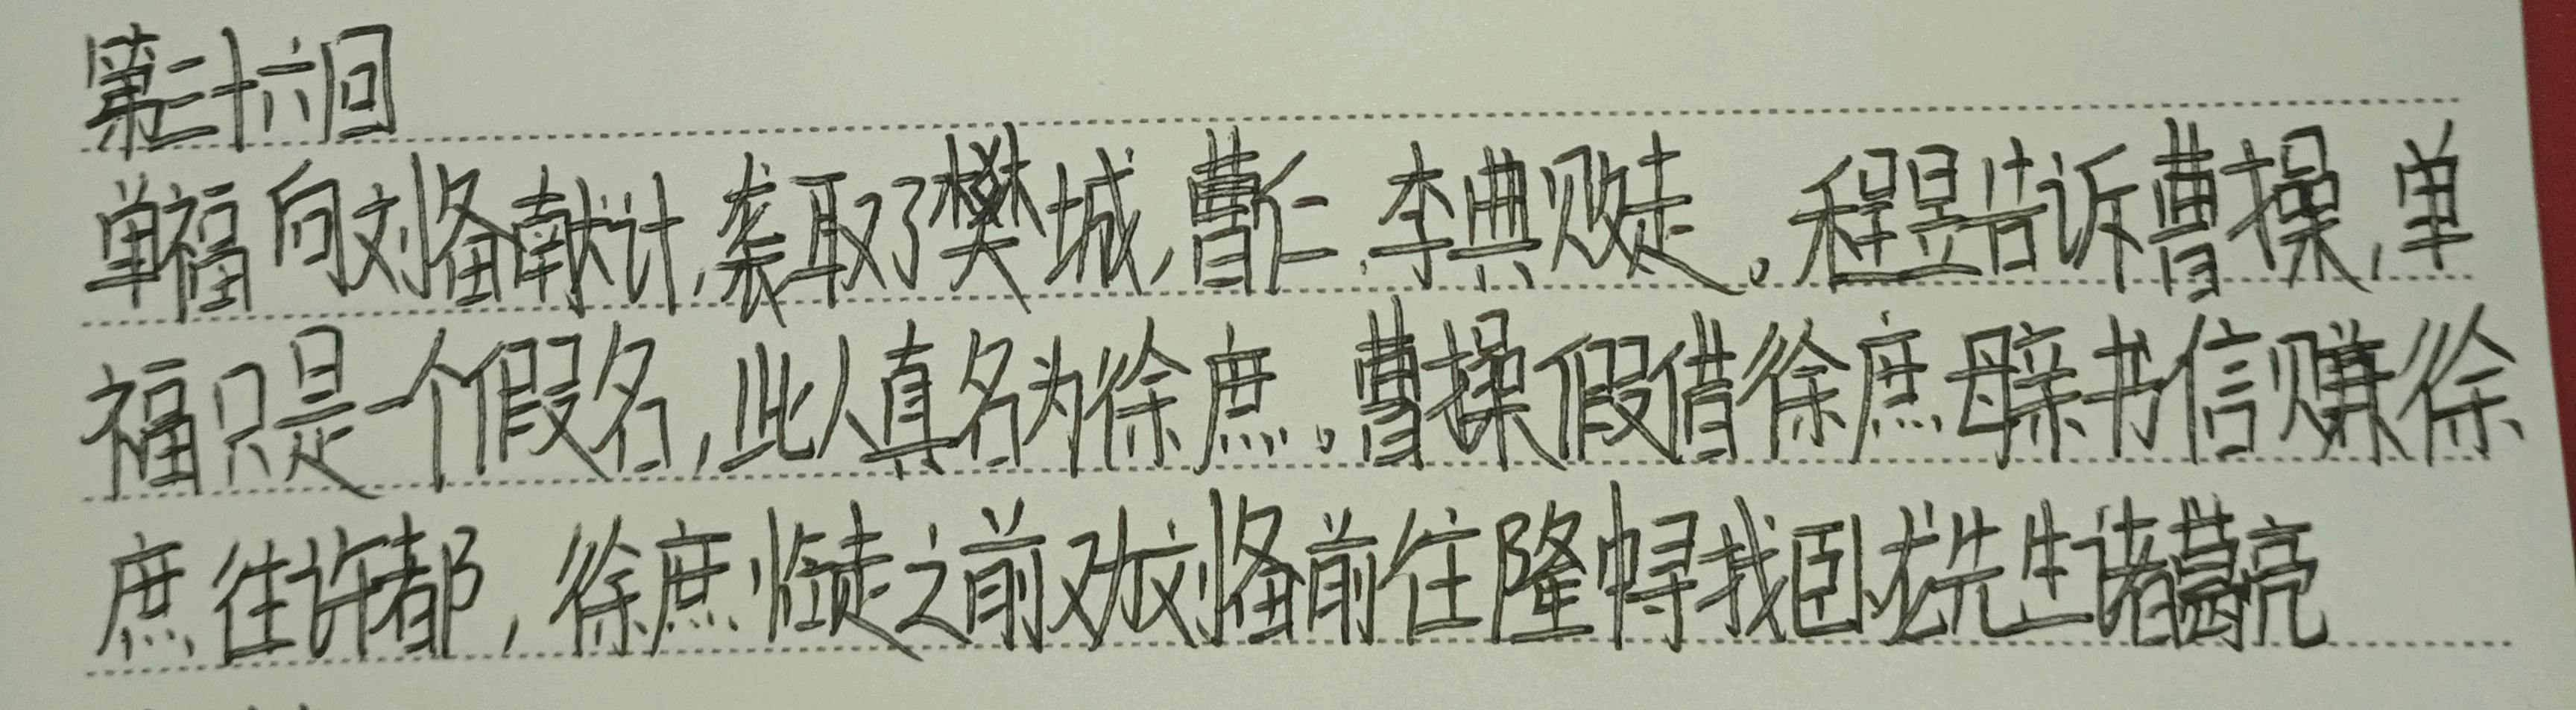 第三十六回
单福向刘备献计,袭取了樊城,曹仁.李典败走。程昱告诉曹操,单
福只是一个假名,此人真名为徐庶。曹操假借徐庶母亲书信赚徐
庶往许都,徐庶临走之前又劝刘备前往隆中寻找卧龙先生诸葛亮